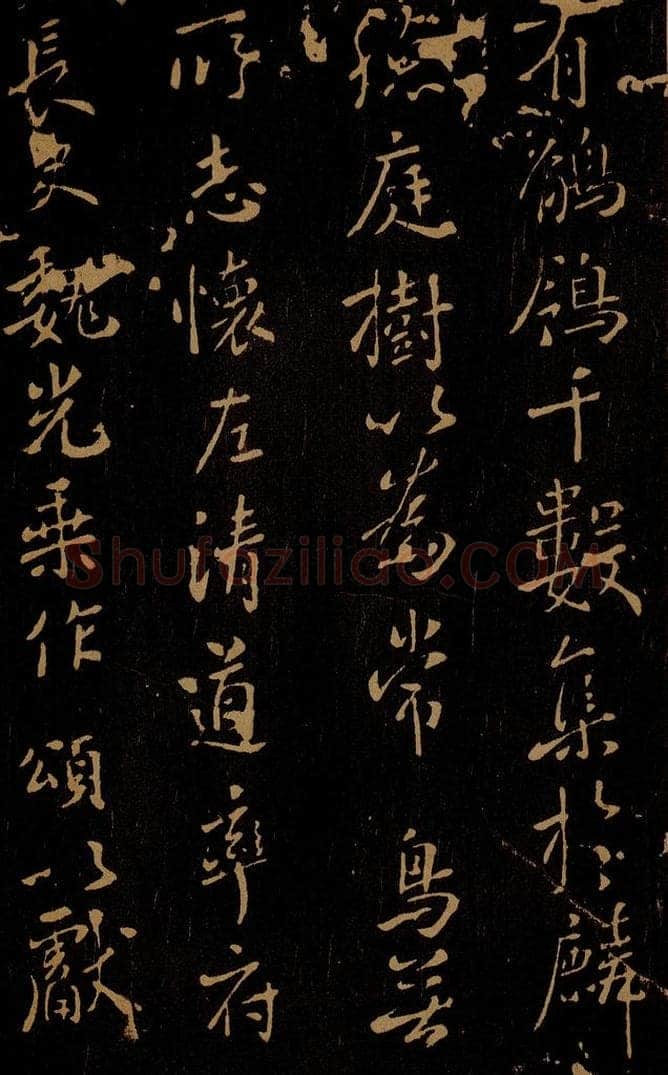 有鶺鴒千數集於麟
德庭樹以為常鳥無
所志懷左清道率府
長史魏光乘作頌以獻
Shufaziliao.COM